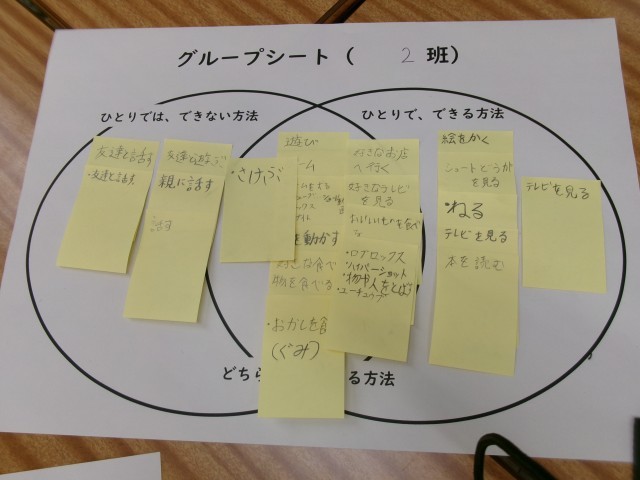 グループシート( 2 班)
ひとりでは、できない方法
ひとりで、できる方法
友達と話す
・友達と話す
友達と遊ぶ
親に話す
話す
・さけぶ
遊び
ーム
を動かす
好きな食べ
物を食べる
・おかしを食
(ぐみ)
好きなお店
へ行く
好きなテレビ
を見る
おいしいものを食べ
・ロブロックス
・ハイパーショット
・物や人をとば
・ユーチューブ
絵をかく
ショートどうがを見る
・ねる
テレビを見る
本を読む
テレビを見る
どちら
る方法